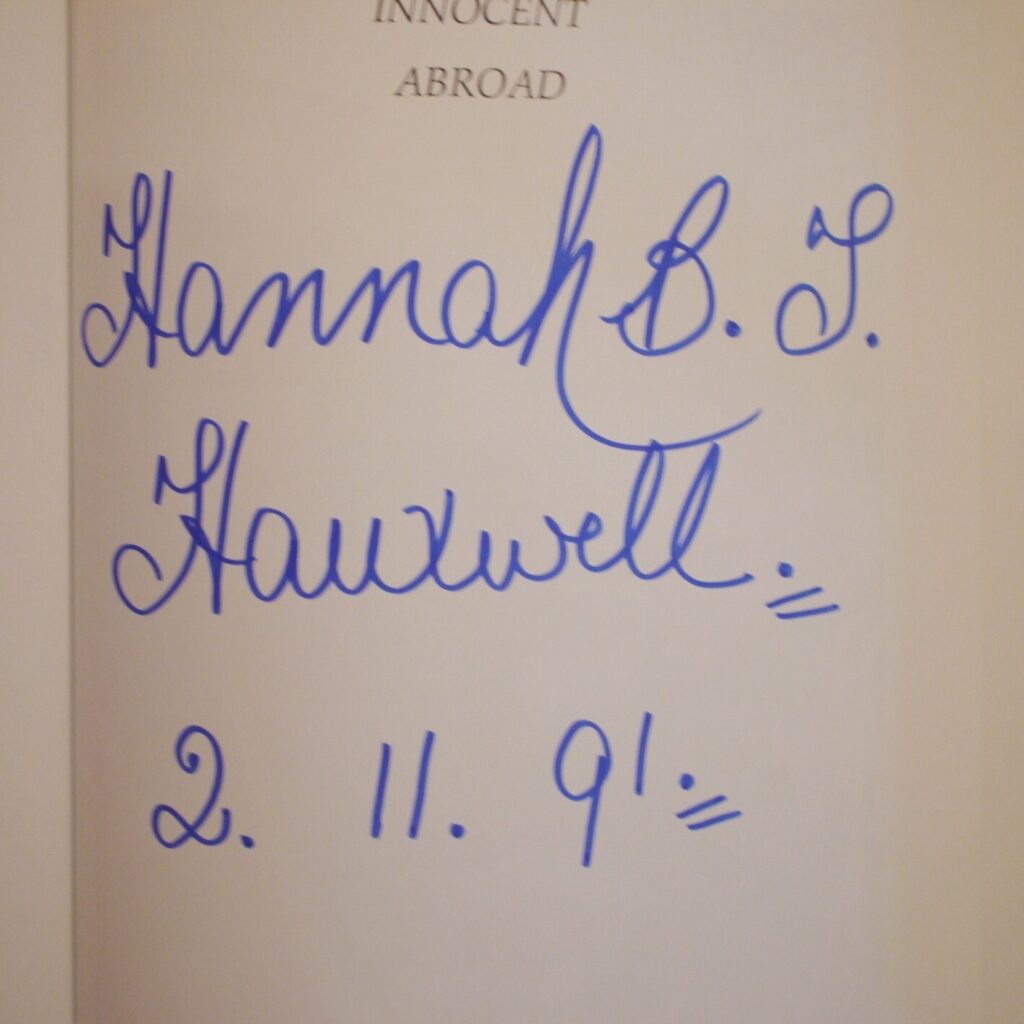 INNOCENT
ABROAD
Hannah B. T.
Hauxwell.
2. 11. 91.